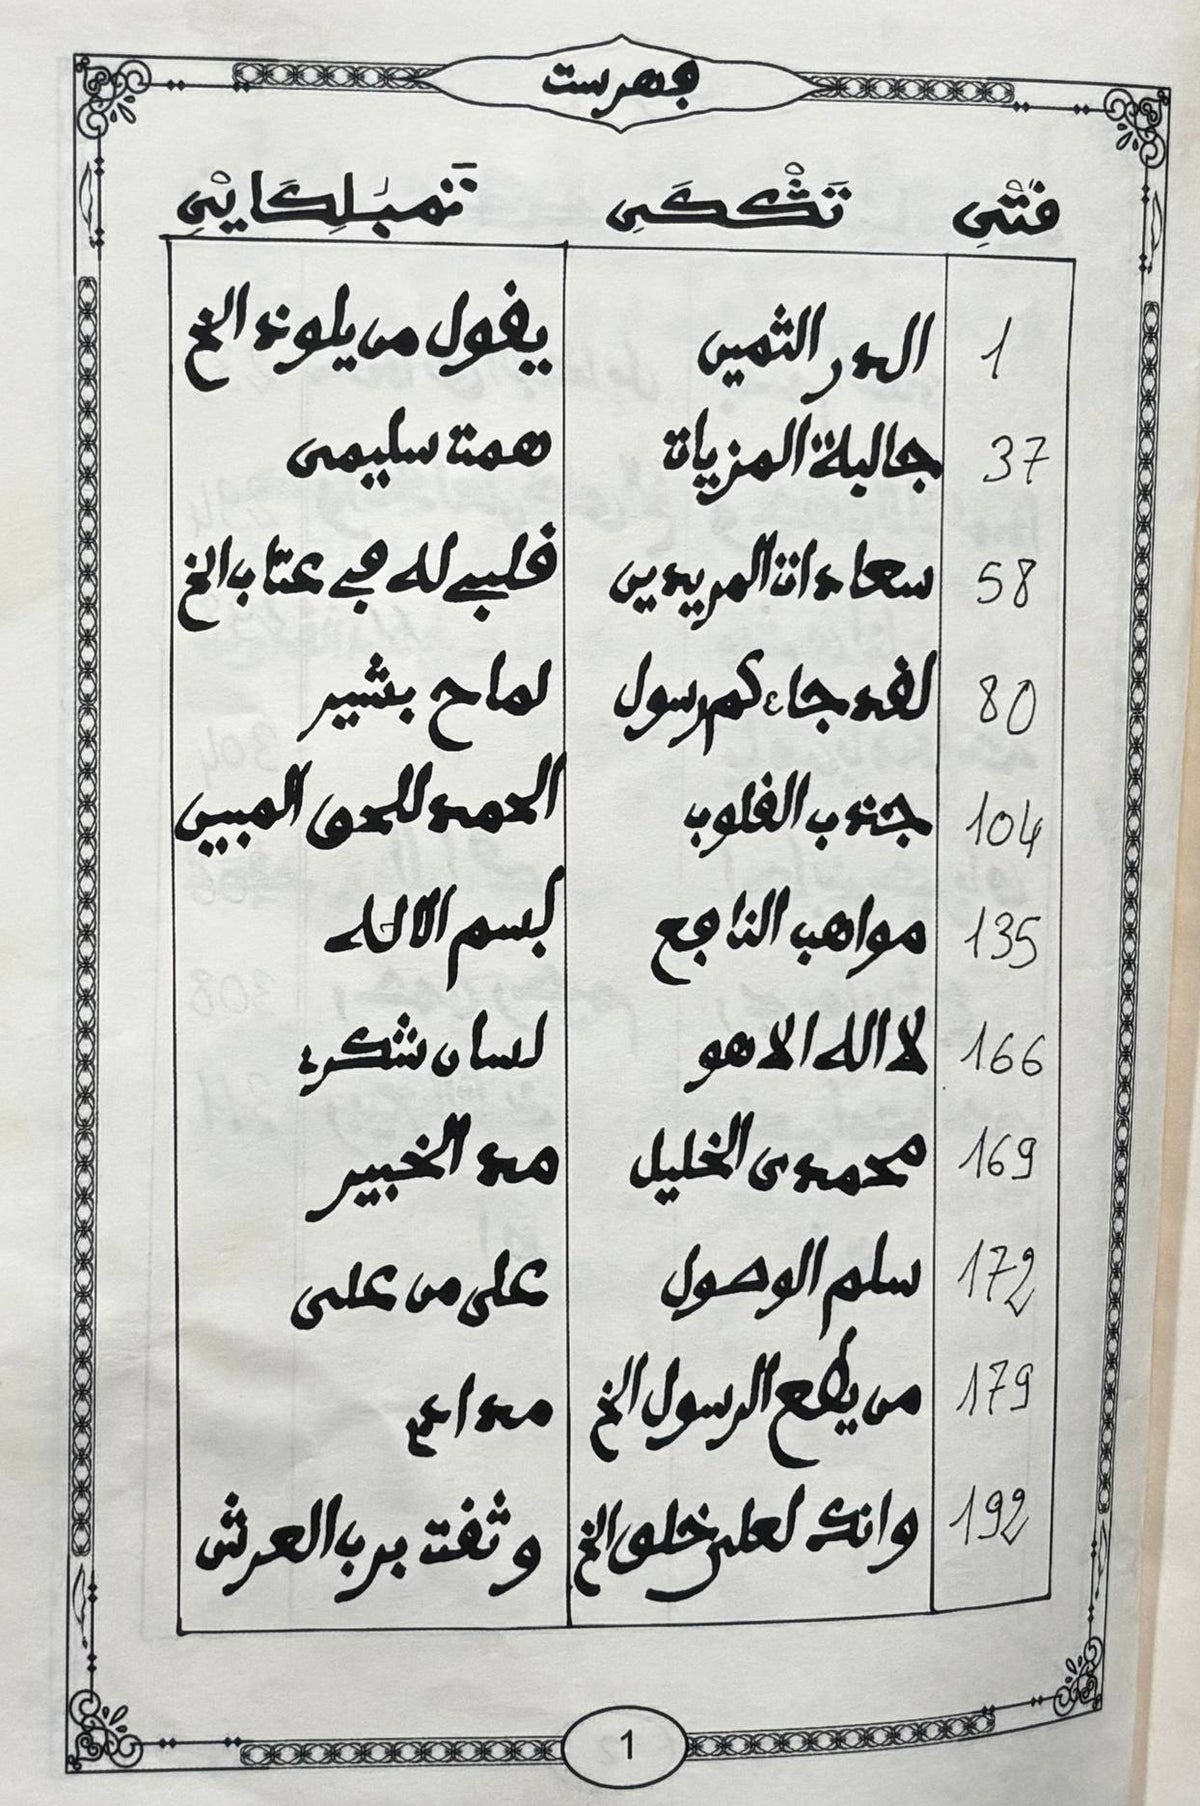 فهرست
فٌتْنِ تَݣْككَىِ تَنمبَلِكَايْنِ
1 الدر الثمين يقول من يلوذ الخ
37 جالبة المزيات همت سليمى
58 سعادات المريدين قلبي له في عتاب الخ
80 لقد جاءكم رسول لماح بشير
104 جذب القلوب الحمد للحق المبين
135 مواهب النافع بسم الاله
166 لا اله الا هو لسان شكر
169 محمدى الخليل مد الخبير
172 سلم الوصول على من على
179 من يطع الرسول الخ مداع
192 وانك لعلى خلق الخ وثقت برب العرش
1